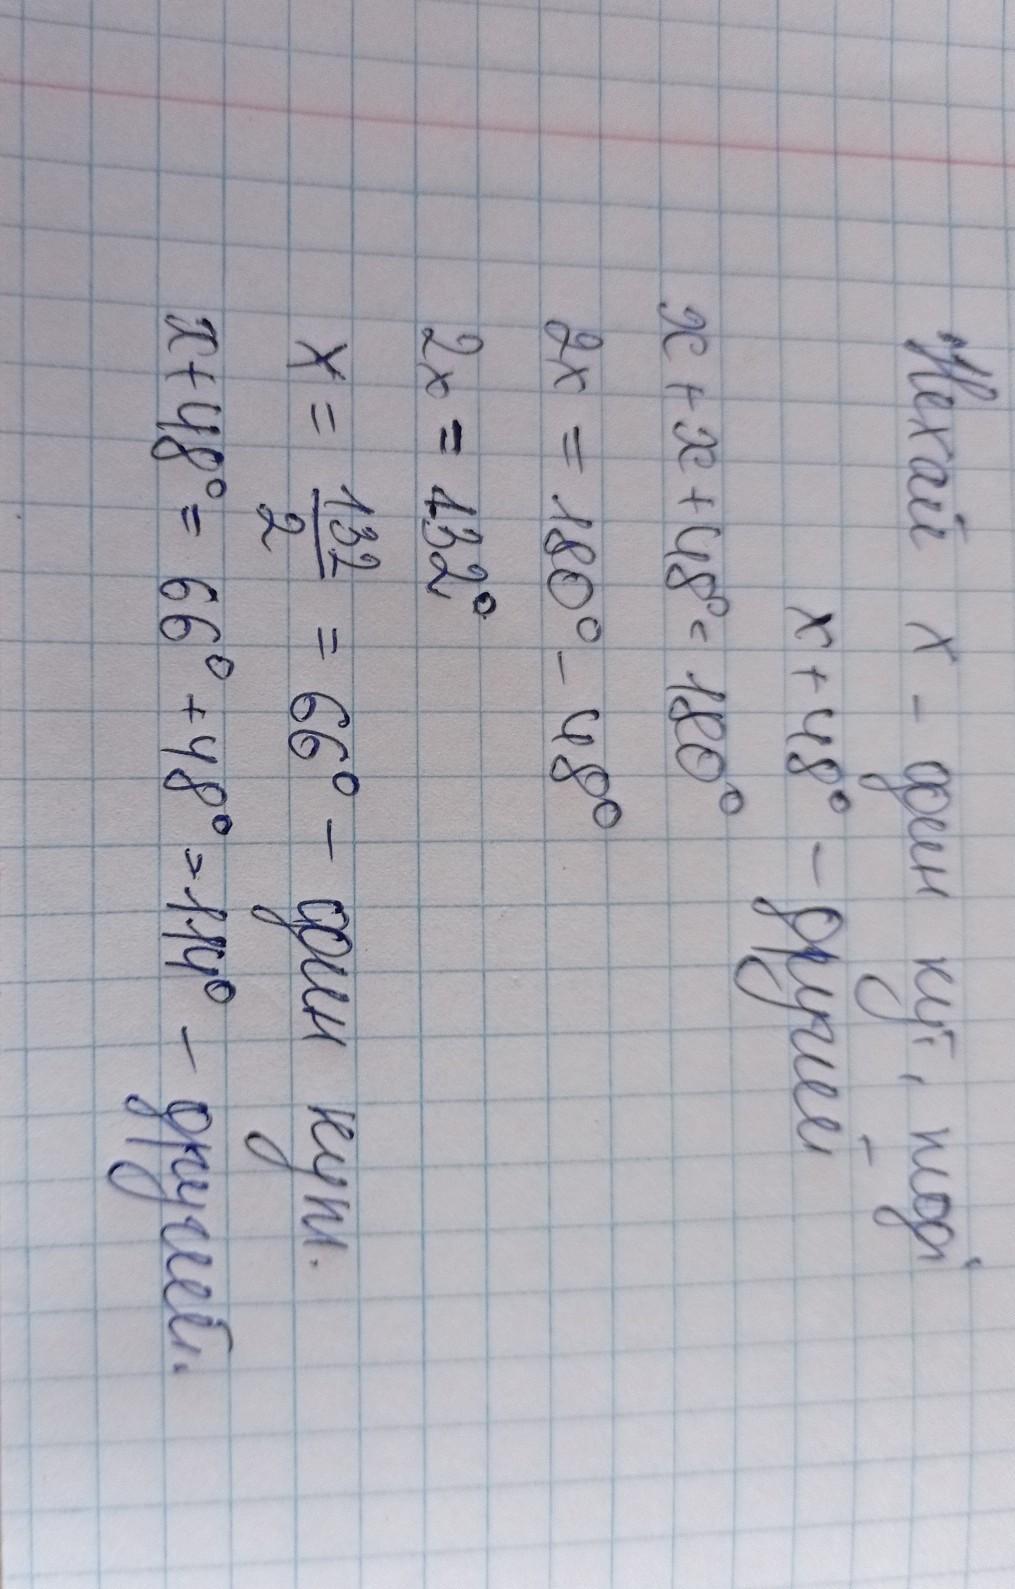 Нехай x - один кут, тоді
x + 48° - другий
x + x + 48° = 180°
2x = 180° - 48°
2x = 132°
x = 132/2 = 66° - один кут.
x + 48° = 66° + 48° = 114° - другий.